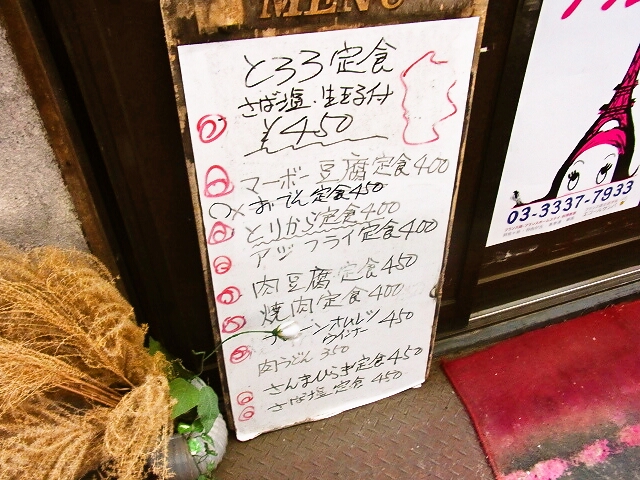 MENU
とろろ定食
さば塩・生玉子付
¥450
マーボー豆腐定食400
おでん定食450
とりから定食400
アジフライ定食400
肉豆腐定食450
焼肉定食400
オムレツ
ウインナー 450
肉うどん 350
さんまひらき定食450
さば塩定食 450
03-3337-7933